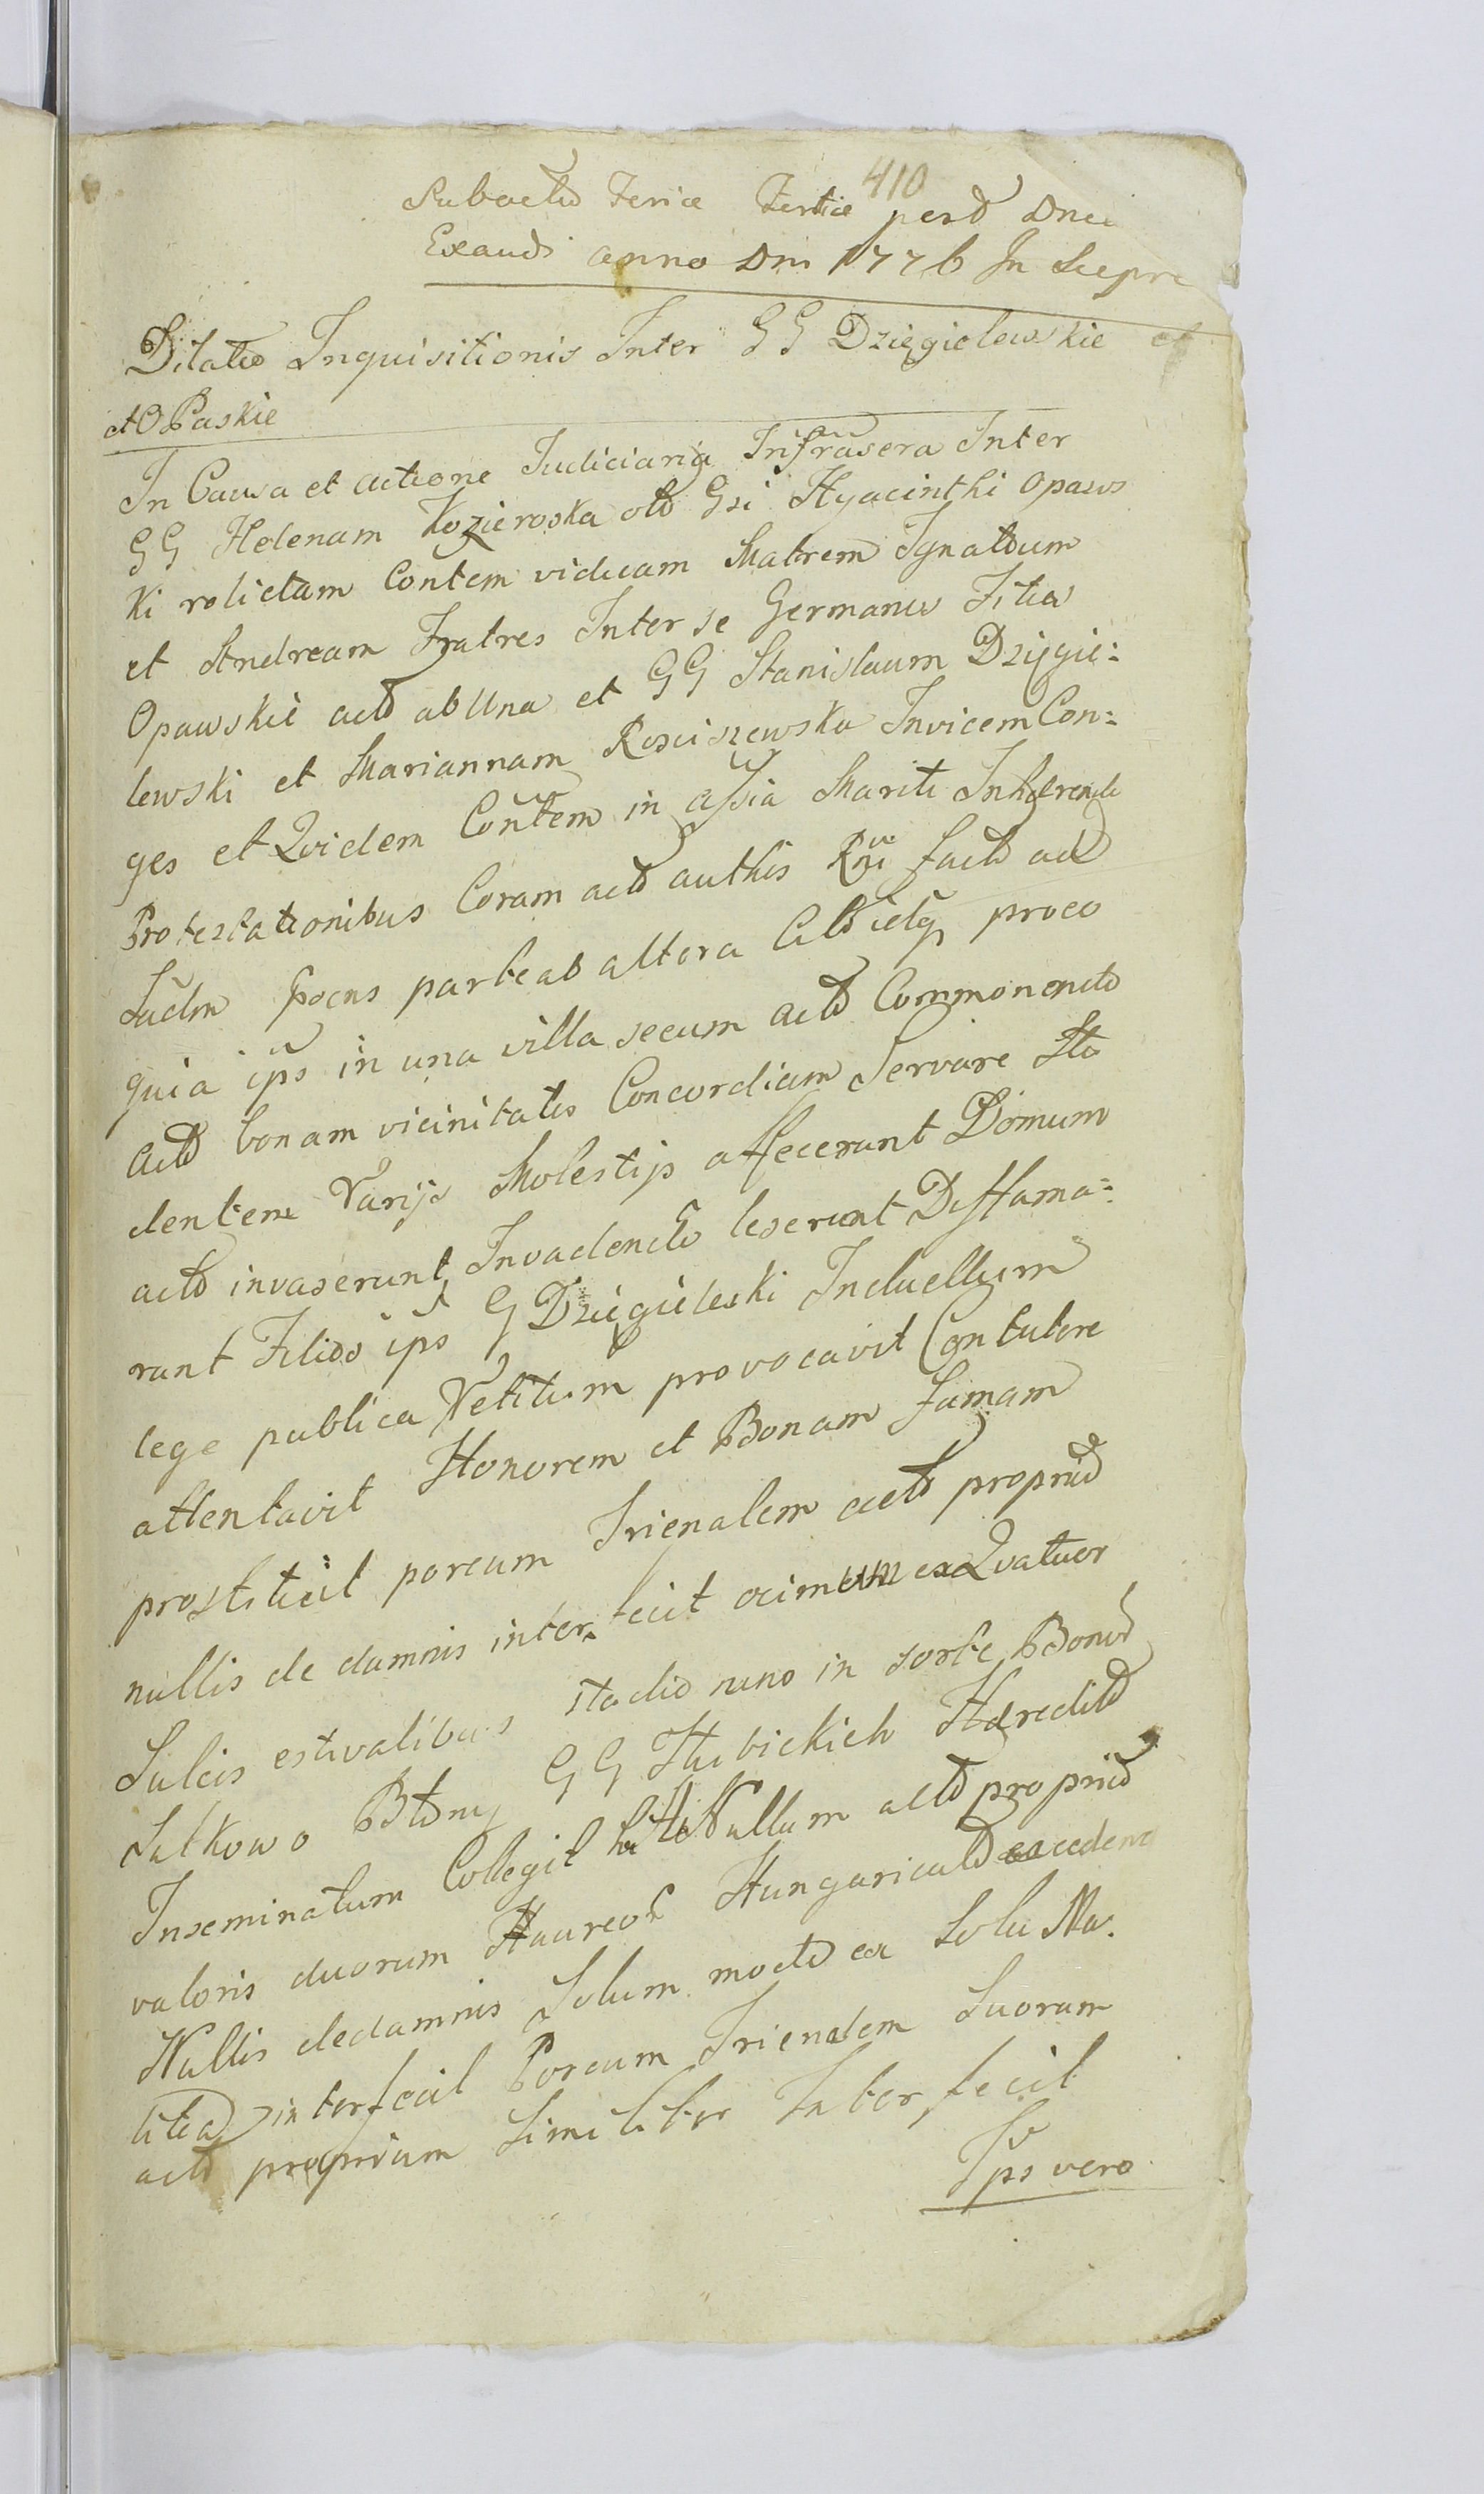 410
Subactu Feriæ Tertiæ post Dnca
Exaudi anno Dni 1776 In Sierpc
Dilatio Inquisitionis Inter GG Dzięgielewskie et
et OPaskie
In Causa et actione Judiciaria Infrascra Inter
GG Helenam Kozieroska olo Gsi Hyacinthi Opaws
ki relictam Contem viduam Matrem Ignatium
et Andream Fratres Inter se Germanos Filios
Opawskie acto ab Una et GG Stanislaum Dzięgie:
lewski et Mariannam Rosciszewska Invicem Con:
ges et Qvidem Contem in assia Mariti Inhærendo
Protestationibus Coram acto authis Rni facto ad
Judm pocns parte ab altera Citt ideq proeo
quia ips in una villa secum acto Commonendo
acto bonam vicinitatis Concordiam Servare Stu
dentem Varijs Molestijs affecerunt Domum
acto invaserunt Invadendo leserunt Diffama:
runt Filios ips G Dzięgieleski Induellum
lege publica Vetitum provocavit Contutere
attentavit Honorem et Bonam famam
prostituit porcum Trienalem acto propriu
nullis de damnis interfecit ocimum ex Qvatuor
Sulcis estivalibus stadio runo in sorte Bonor
Sutkowo Btony GG Hubickich Hæredit
Inseminatum Collegit Nullum acto propriu
valoris duorum Haureor Hungarical excedena
Nullis dedamnis Solum modo ex Solu Ma.
litia interfecit Porcum Trienalem Suorum
acto proprium Similiter Interfecit
Ips vero